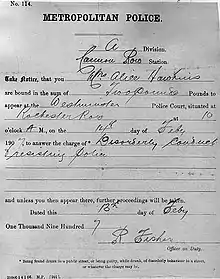 No. 114.
METROPOLITAN POLICE.
A Division.
Cannon Row Station
Take Notice, that you Mrs Alice Hawkins
are bound in the sum of Two Pounds Pounds to
appear at the Westminster Police Court, situated at
Rochester Row at 10
o'clock A M., on the 14th day of Feby
190 to answer the charge of * Disorderly Conduct
& resisting police
and unless you then appear, further proceedings will be taken.
Dated this 13th day of Feby
One Thousand Nine Hundred 7
R Fisher
Officer on Duty.
* Being found drunk in a public street, or being guilty, while drunk, of disorderly behaviour in a street,
or whatever the charge may be.
M.P.